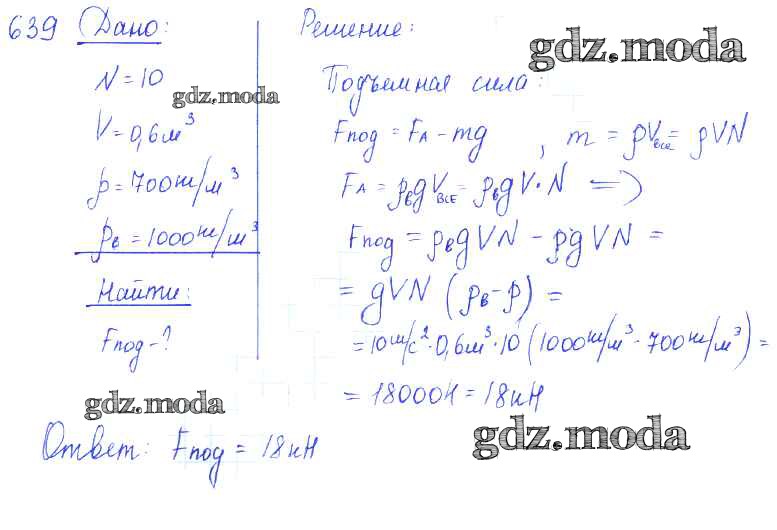 639 Дано:
N = 10
V = 0,6 м³
ρ = 700 кг/м³
ρв = 1000 кг/м³
Найти:
Fпод - ?
Решение:
Подъемная сила:
Fпод = FА - mg, m = ρVвсе = ρVN
FА = ρвgVвсе = ρвgV·N =>
Fпод = ρвgVN - ρgVN =
= gVN (ρв - ρ) =
= 10 м/с² · 0,6 м³ · 10 (1000 кг/м³ - 700 кг/м³) =
= 18000 Н = 18 кН
Ответ: Fпод = 18 кН
gdz.moda
gdz.moda
gdz.moda
gdz.moda